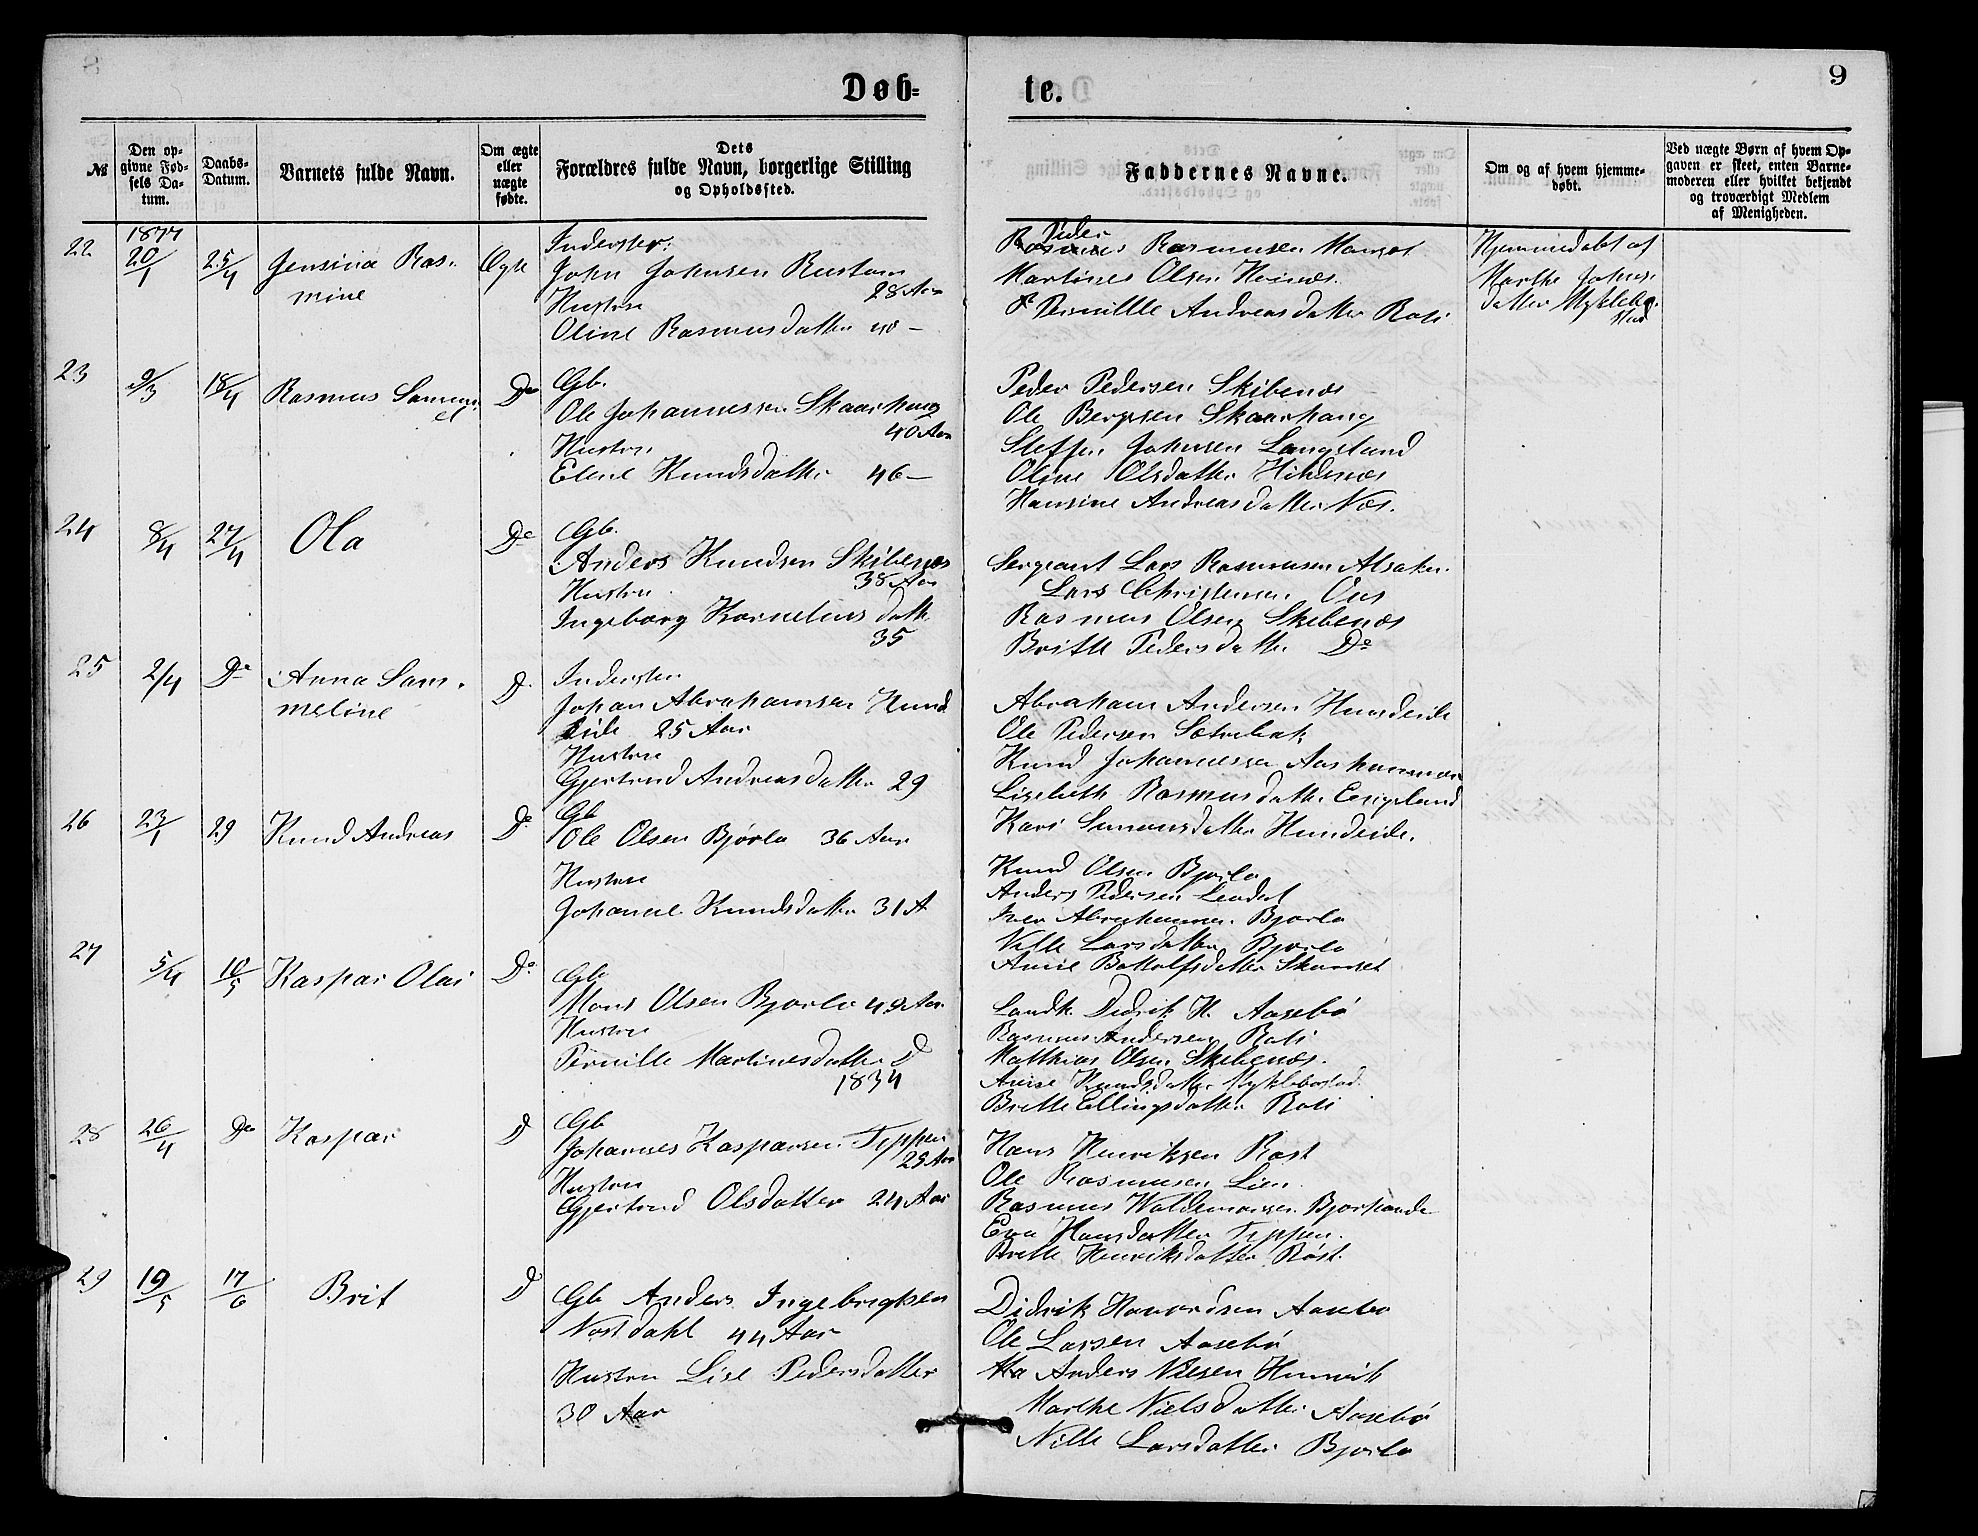 8
Døb-
te.
9
№
Den op-
givne Fød-
sels Da-
tum.
Daabs-
Datum.
Barnets fulde Navn.
Om ægte
eller
uægte
fødte.
Dets
Forældres fulde Navn, borgerlige Stilling
og Opholdssted.
Faddernes Navne.
Om og af hvem hjemme-
døbt.
Ved uægte Børn af hvem Op-
gaven er skeet, enten Barne-
moderen eller hvilket bekjendt
og troværdigt Medlem
af Menigheden.
1877
22 20/1 25/4 Jensine Ras-
mine
Ægte
Inderster
John Johnsen
28 Aar
Hustru
Oline Rasmusdatter 40 -
Peder
Rasmus Rasmusen
Martines Olsen
Pernille Andreasdatter Roti
Hjemmedøbt af
Marthe Johns-
datter Myklebo-
stad
23 9/3 18/4 Rasmus Samu-
el
Do
Gb.
Ole Johannessen Skaarhaug
40 Aar
Hustru
Elene Knudsdatter 46 -
Peder Pedersen Skibenæs
Ole Skaarhaug
Steffen Johnsen Langeland
Oline Olsdatter
Hansine Andreasdatter Næs.
24 8/4 27/4 Ola Do
Gb.
Anders Knudsen Skibenæs
38 Aar
Hustru
Ingeborg Kornelius datt.
35
Sergeant Lars Rasmusen Alsaker
Lars Christensen
Rasmus Olsen Skibenæs
Britte Pedersdatter Do
25 2/4 Do Anna Sam-
meline
D.
Inderster
Johan Abrahamsen Hund
eide 25 Aar
Hustru
Gjertrud Andreasdatter 29
Abraham Andersen Hundeide
Ole Pedersen
Knud Johannessen
Lisebeth Rasmusdatter
Kari Simonsdatter Hundeide.
26 23/1 29 Knud Andreas Do
Gb
Ole Olsen Bjørlo 36 Aar
Hustru
Johanne Knudsdatter 31 A
Knud Olsen Bjørlo
Anders Pedersen
Iver Abrahamsen Bjørlo
Nille Larsdatter Bjørlo
Anne Botolfsdatter
27 5/4 10/5 Kaspar Olai Do
Gb
Mons Olsen Bjørlo 49 Aar
Hustru
Pernille Martinesdatter D
1834
Landh. Didrik H. Aasebø
Rasmus Andersen Roti
Matthias Olsen Skibenæs.
Anne Knudsdatter Myklebostad
Britte Ellingsdatter Roti
28 26/4 Do Kaspar D
Gb
Johannes Kasparsen Tippen
25 Aar
Hustru
Gjertrud Olsdatter 24 Aar
Hans Henriksen Røst
Ole Rasmusen Lien
Rasmus Waldemarsen
Eva Hansdatter Tippen.
Britte Henriksdatter Røst.
29 19/5 17/6 Brit D
Gb Anders Ingebrigtsen
Nordahl 44 Aar
Hustru Lise Pedersdatter
30 Aar
Didrik Havardsen Aasebø
Ole Larsen Aasebø
Anders Nilsen
Marthe Nielsdatter Aasebø
Nille Larsdatter Bjørlo